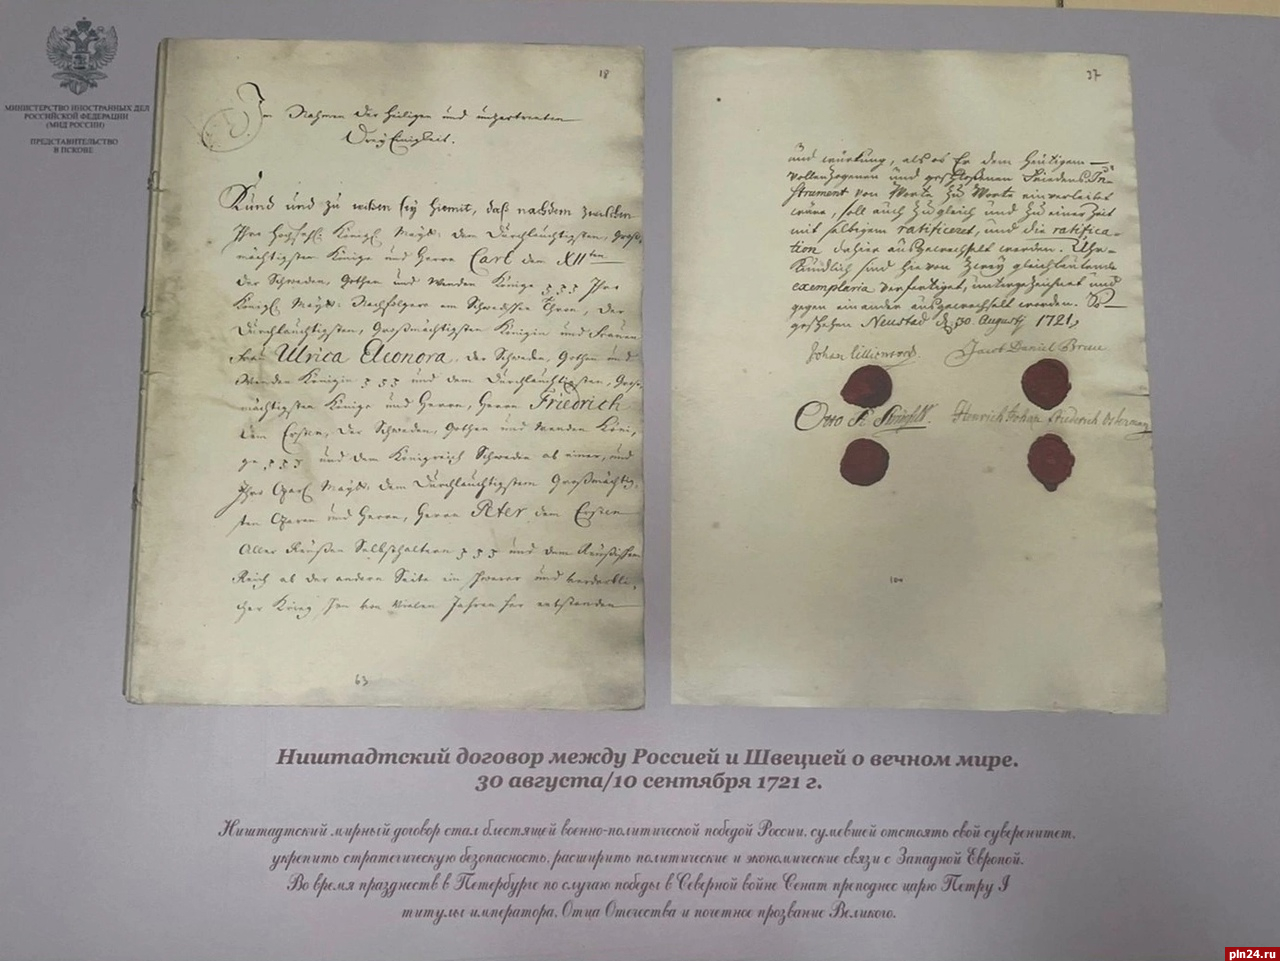 МИНИСТЕРСТВО ИНОСТРАННЫХ ДЕЛ
РОССИЙСКОЙ ФЕДЕРАЦИИ
(МИД РОССИИ)
ПРЕДСТАВИТЕЛЬСТВО
В ПСКОВЕ
18
Im Nahmen der heiligen und unzertrenten
Dreÿ Einigkeit.
Kund und zu wißen seÿ hiemit, daß nachdem zwischen
Ihro Hochseel. Königl. Maÿtt: dem Durchlauchtigsten, Groß-
mächtigsten Könige und Herrn Carl dem XIIten
der Schweden, Gothen und Wenden Könige Ihro
Königl. Maÿtt: Nachfolgere am Schwedischen Thron, der
Durchlauchtigsten, Großmächtigsten Königin und Frauen
Frau Ulrica Eleonora, der Schweden, Gothen und
Wenden Königin und dem Durchlauchtigsten, Groß-
mächtigsten Könige und Herrn, Herrn Friedrich
dem Ersten, der Schweden, Gothen und Wenden Köni-
ge und dem Königreich Schweden ab einer, und
Ihro Czari Maÿtt: dem Durchlauchtigsten Großmächtig-
sten Czaren und Herrn, Herrn Peter dem Ersten
Aller Reußen Selbsthaltern und dem Reußischen
Reich ab der andern Seite ein schwerer und verderbli-
cher Krieg schon von vielen Jahren her entstanden
63
37
und würkung, als ob Er dem heütigem
vollenzogenen und geschloßenen Friedens In-
strument von Worte zu Worte einverleibet
wäre, soll auch zugleich und zu einer Zeit
mit selbigem ratificeret, und die ratifica-
tion dahier ausgewechselt werden. Uhr-
kundlich sind hievon zweÿ gleichlautende
exemplaria verfertiget, unterzeichnet und
gegen einander ausgewechselt werden. So
geschehen Neustad d. 30. Augusti 1721.
Johan Lillienstedt.
Jacob Daniel Bruce
Otto R. Strömfeldt.
Henrich Johan Friederich Osterman
100
Ништадтский договор между Россией и Швецией о вечном мире.
30 августа/10 сентября 1721 г.
Ништадтский мирный договор стал блестящей военно-политической победой России, сумевшей отстоять свой суверенитет,
укрепить стратегическую безопасность, расширить политические и экономические связи с Западной Европой.
Во время празднеств в Петербурге по случаю победы в Северной войне Сенат преподнес царю Петру I
титулы императора, Отца Отечества и почетное прозвание Великого.
pln24.ru